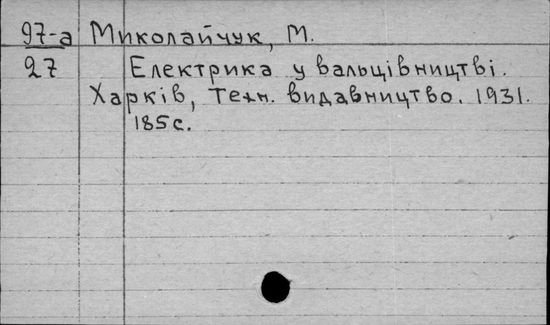 97-а Миколайчук, М.
27 Електрика у вальцівництві.
Харків, Техн. видавництво. 1931.
185с.